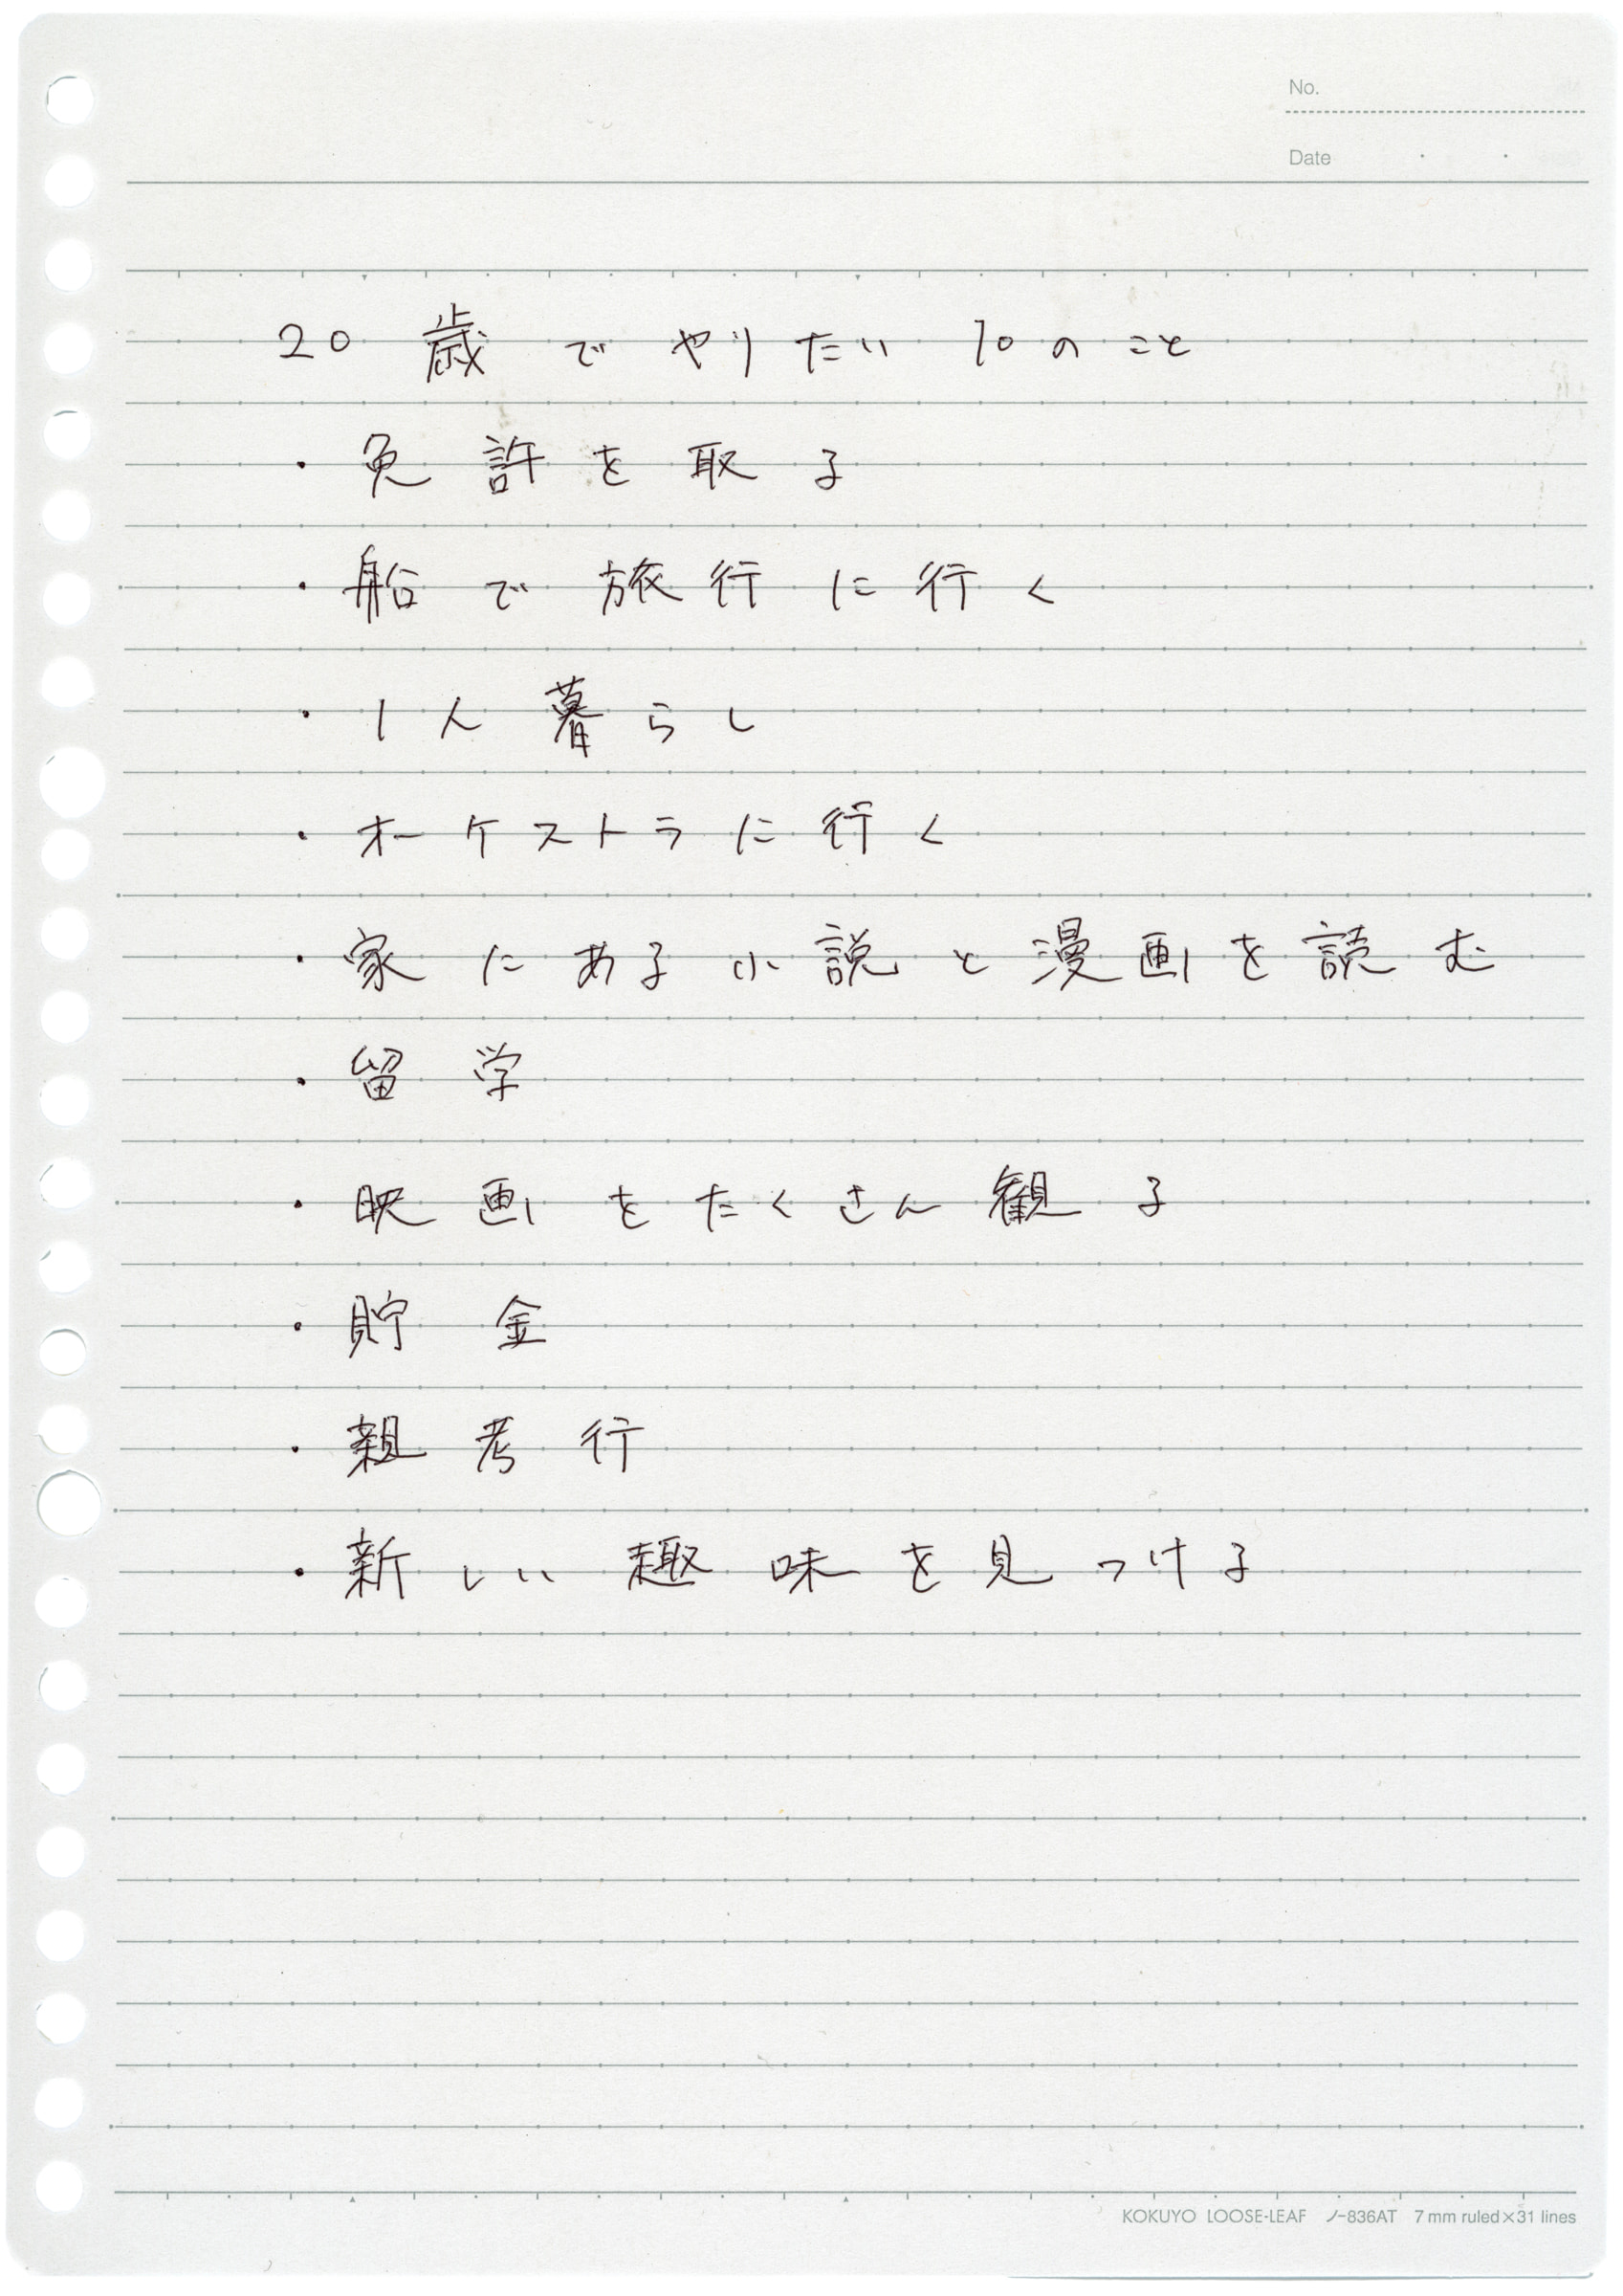 No.
Date
20歳でやりたい10のこと
・免許を取る
・船で旅行に行く
・1人暮らし
・オーケストラに行く
・家にある小説と漫画を読む
・留学
・映画をたくさん観る
・貯金
・親考行
・新しい趣味を見つける
KOKUYO LOOSE-LEAF ノ-836AT 7 mm ruled×31 lines